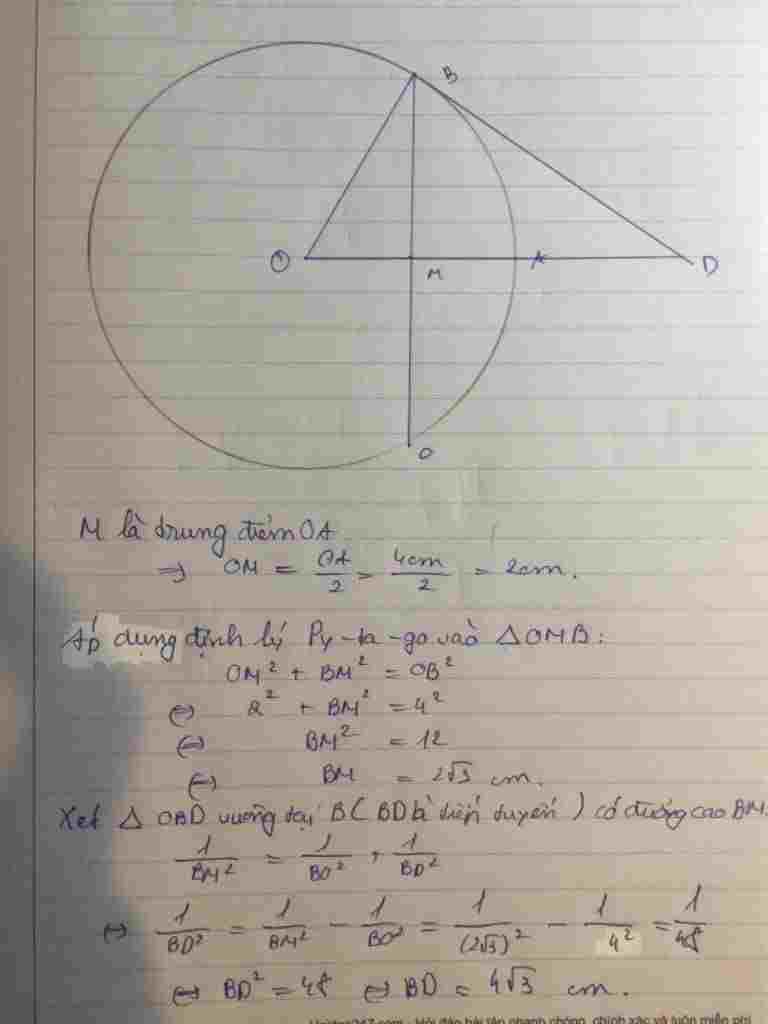 B
O
M
A
D
O
M là trung điểm OA
=> OM = OA/2 = 4cm/2 = 2cm.
Áp dụng định lý Py-ta-go vào △OMB:
OM² + BM² = OB²
<=> 2² + BM² = 4²
<=> BM² = 12
<=> BM = 2√3 cm.
Xét △ OBD vuông tại B (BD là tiếp tuyến) có đường cao BM.
1/BM² = 1/BO² + 1/BD²
<=> 1/BD² = 1/BM² - 1/BO² = 1/(2√3)² - 1/4² = 1/48
<=> BD² = 48 <=> BD = 4√3 cm.
Hoidap247.com - Hỏi đáp bài tập nhanh chóng, chính xác và luôn miễn phí